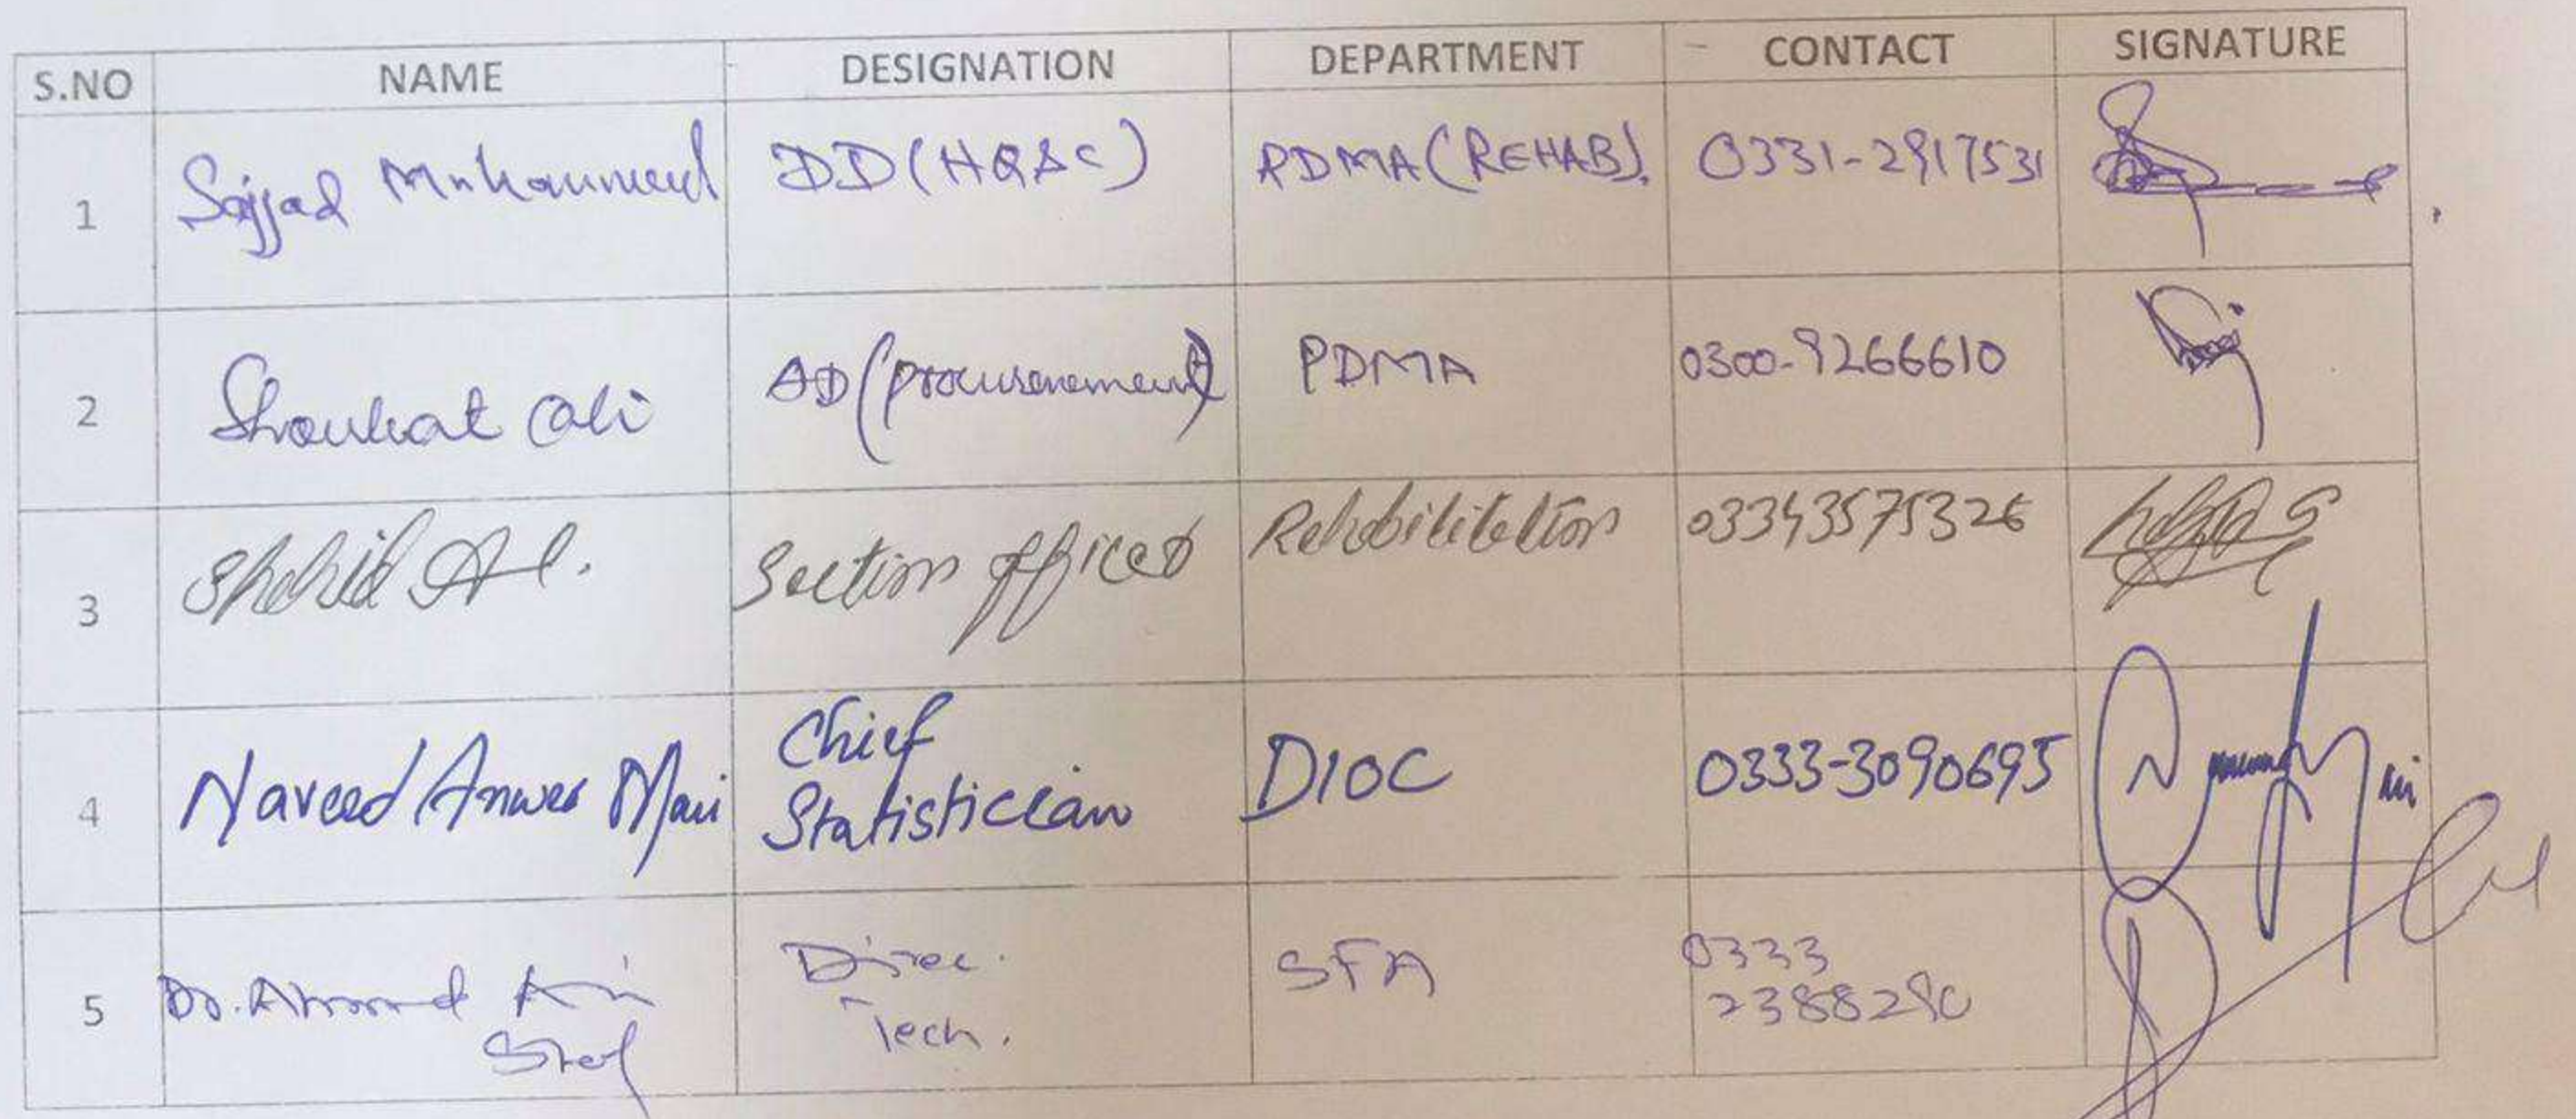 S.NO NAME DESIGNATION DEPARTMENT CONTACT SIGNATURE
1 Sajjad Muhammed DD (HQ&C) PDMA (REHAB). 0331-2917531
2 Shoukat Ali AD (Procurement) PDMA 0300-9266610
3 Shahid Al. Section officer Rehabilitation 03343575326
4 Naveed Anwer Mari Chief DIOC 0333-3090695
Statistician
5 Dr. Ahmed Direc. SFA 0333
Tech. 2388290